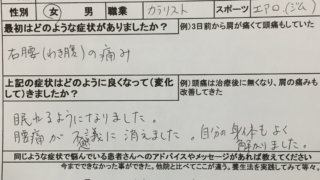 性別 女 男 職業 カラリスト スポーツ エアロ(ジム)
最初はどのような症状がありましたか? 例)3日前から肩が痛くて頭痛もしていた
右腰(わき腹)の痛み
上記の症状はどのように良くなって(変化して)きましたか? 例)頭痛は治療後に無くなり、肩の痛みも改善してきた
眠れるようになりました。
腰痛が不思議に消えました。自分の身体もよく
解かりました。
同じような症状で悩んでいる患者さんへのアドバイスやメッセージがあれば教えてください
今までできなかった事ができた。他院と比べてここが違う。養生法を実践してみて等々。